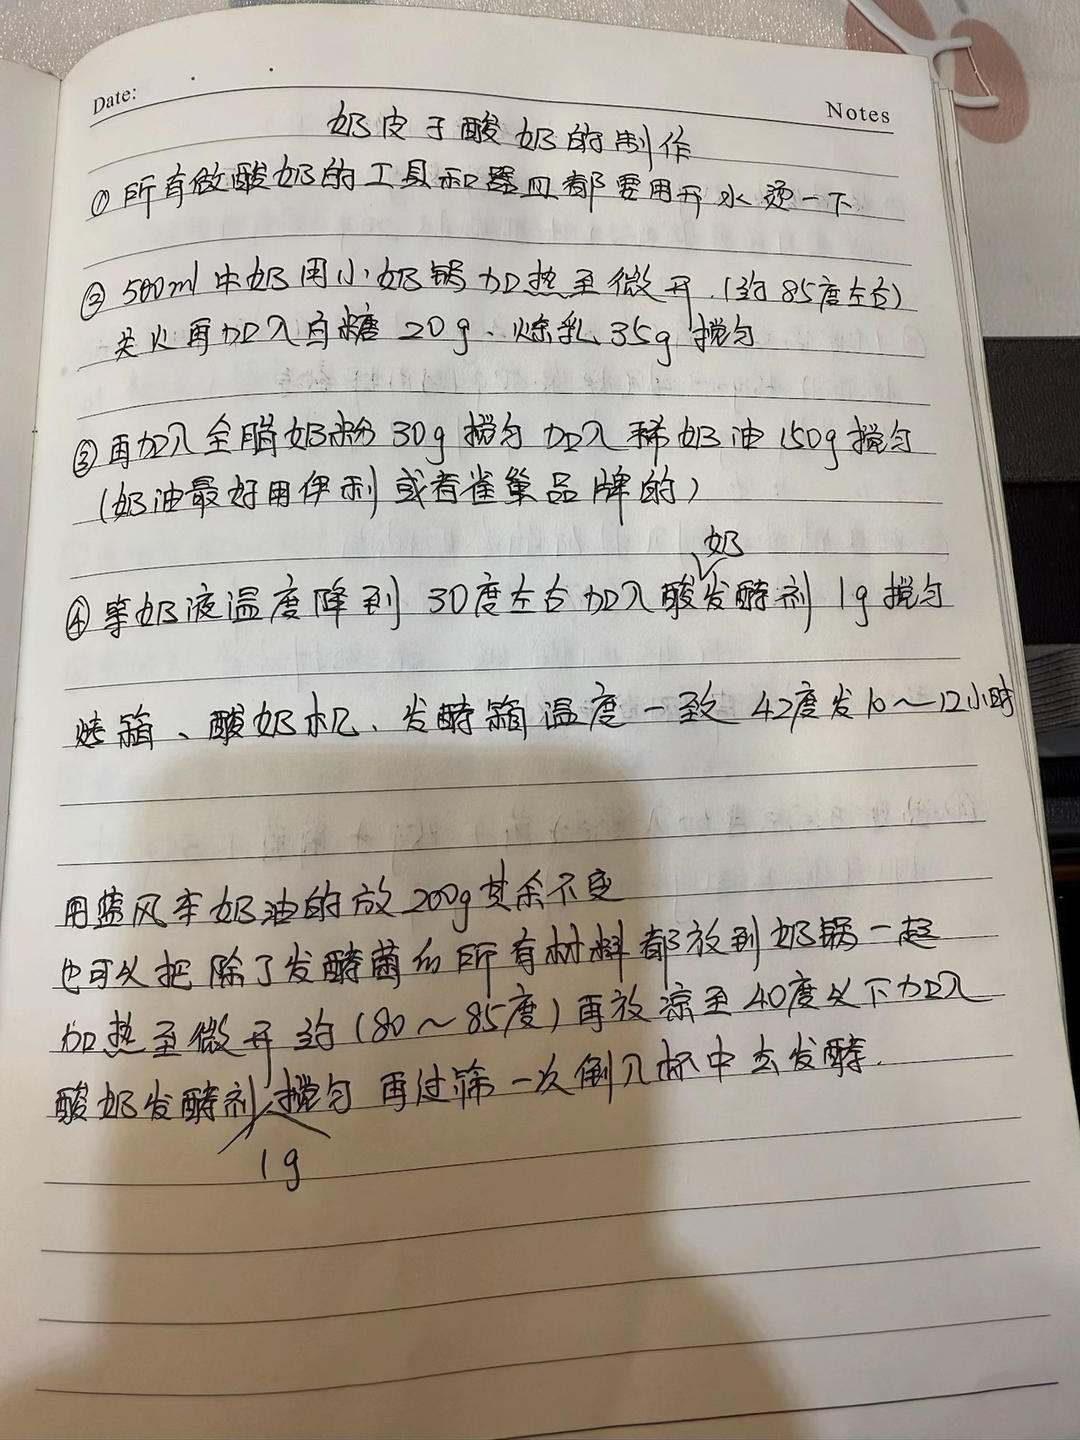 Date:
Notes
奶皮子酸奶的制作
①所有做酸奶的工具和器皿都要用开水烫一下
②500ml牛奶用小奶锅加热至微开.(约85度左右)
关火再加入白糖20g、炼乳35g搅匀
③再加入全脂奶粉30g搅匀加入稀奶油150g搅匀
(奶油最好用伊利或者雀巢品牌的)
④等奶液温度降到30度左右加入酸奶发酵剂1g搅匀
烤箱、酸奶机、发酵箱温度一致42度发10~12小时
用蓝风车奶油的放200g其余不变
也可以把除了发酵菌的所有材料都放到奶锅一起
加热至微开约(80~85度)再放凉至40度以下加入
酸奶发酵剂1g搅匀再过筛一次倒入杯中去发酵.